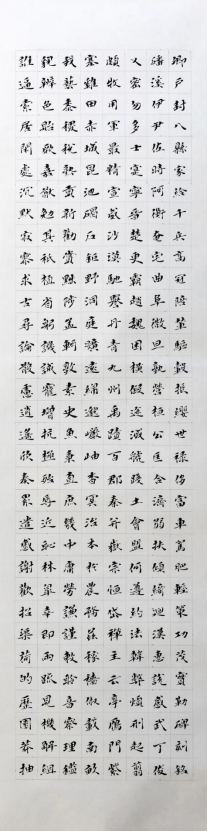 卿戶封八縣家給千兵高冠陪輦驅轂振纓世祿侈富車駕肥輕策功茂實勒碑刻銘
磻溪伊尹佐時阿衡奄宅曲阜微旦孰營桓公匡合濟弱扶傾綺迴漢惠說感武丁俊
乂密勿多士寔寧晉楚更霸趙魏困橫假途滅虢踐土會盟何遵約法韓弊煩刑起翦
頗牧用軍最精宣威沙漠馳譽丹青九州禹跡百郡秦并嶽宗恆岱禪主云亭雁門紫
塞雞田赤城昆池碣石鉅野洞庭曠遠綿邈巖岫杳冥治本於農務茲稼穡俶載南畝
我藝黍稷稅熟貢新勸賞黜陟孟軻敦素史魚秉直庶幾中庸勞謙謹敕聆音察理鑑
貌辨色貽厥嘉猷勉其祗植省躬譏誡寵增抗極殆辱近恥林皋幸即兩疏見機解組
誰逼索居閑處沉默寂寥求古尋論散慮逍遙欣奏累遣慼謝歡招渠荷的歷園莽抽